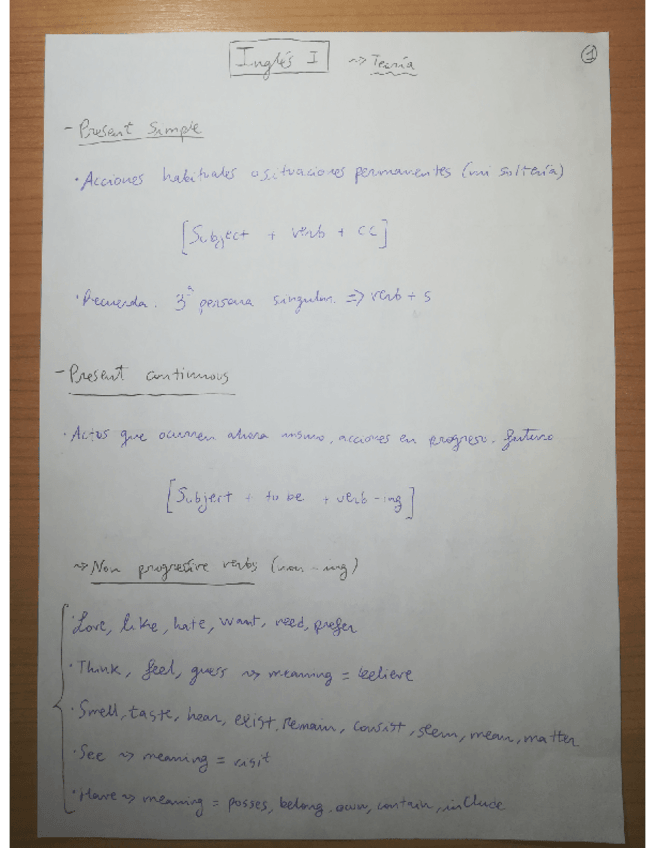 Inglés I ~> Teoría
1
- Present Simple
· Acciones habituales o situaciones permanentes (mi soltería)
[Subject + verb + CC]
· Recuerda. 3ª persona singular => verb + s
- Present continuous
· Actos que ocurren ahora mismo, acciones en progreso. futuro
[Subject + to be + verb -ing]
~> Non progresive verbs (non -ing)
· Love, like, hate, want, need, prefer
· Think, feel, guess ~> meaning = believe
· Smell, taste, hear, exist, remain, consist, seem, mean, matter
· See ~> meaning = visit
· Have ~> meaning = posses, belong, own, contain, include